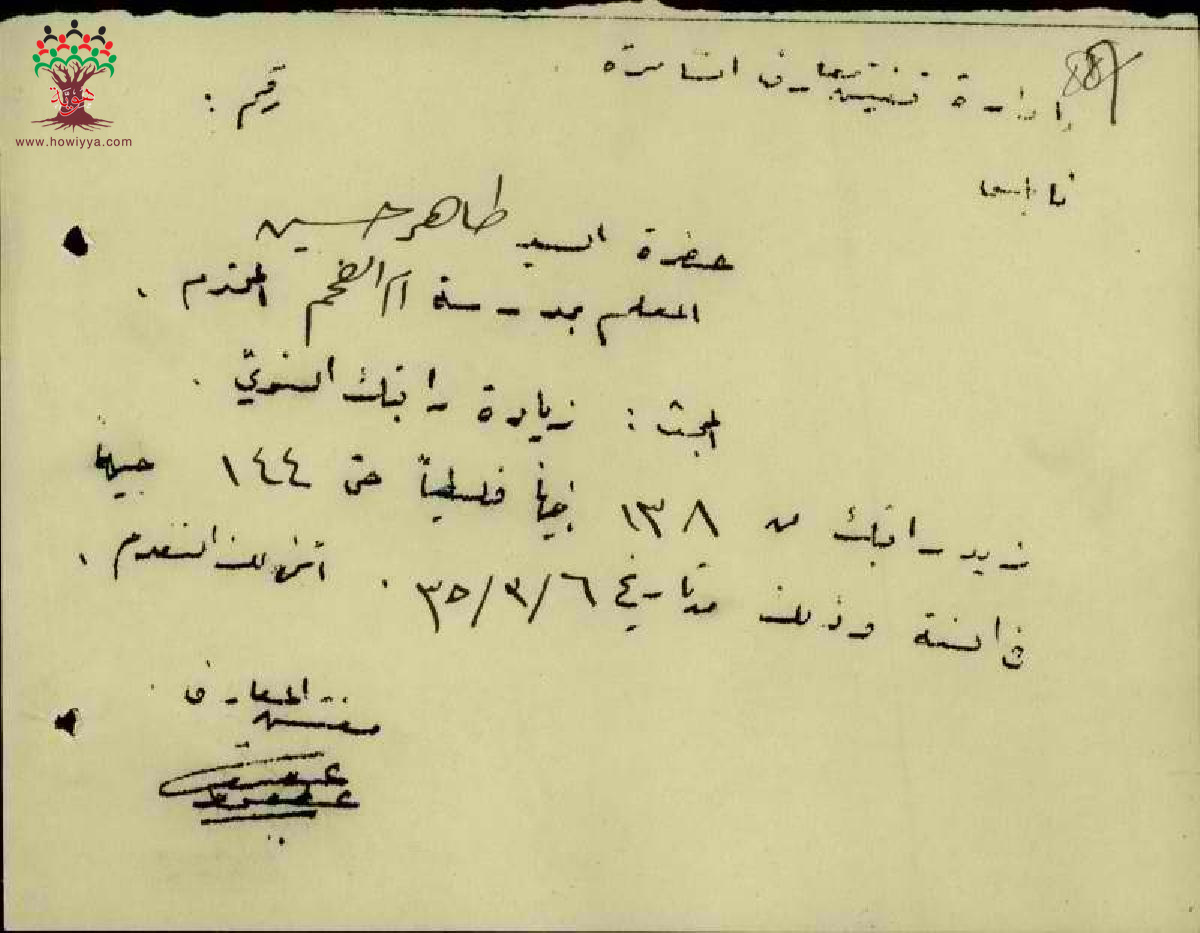 إدارة تفتيش معارف السامرة
88
رقم :
نابلس
حضرة السيد طاهر حسين
المعلم بمدرسة ام الفحم المحترم .
البحث : زيادة راتبك السنوي .
زيد راتبك من ١٣٨ جنيهاً فلسطينياً حتى ١٤٤ جنيهاً
في السنة وذلك من تاريخ ٣٥/٣/٦ . اتمنى لك التقدم .
مفتش المعارف
www.howiyya.com